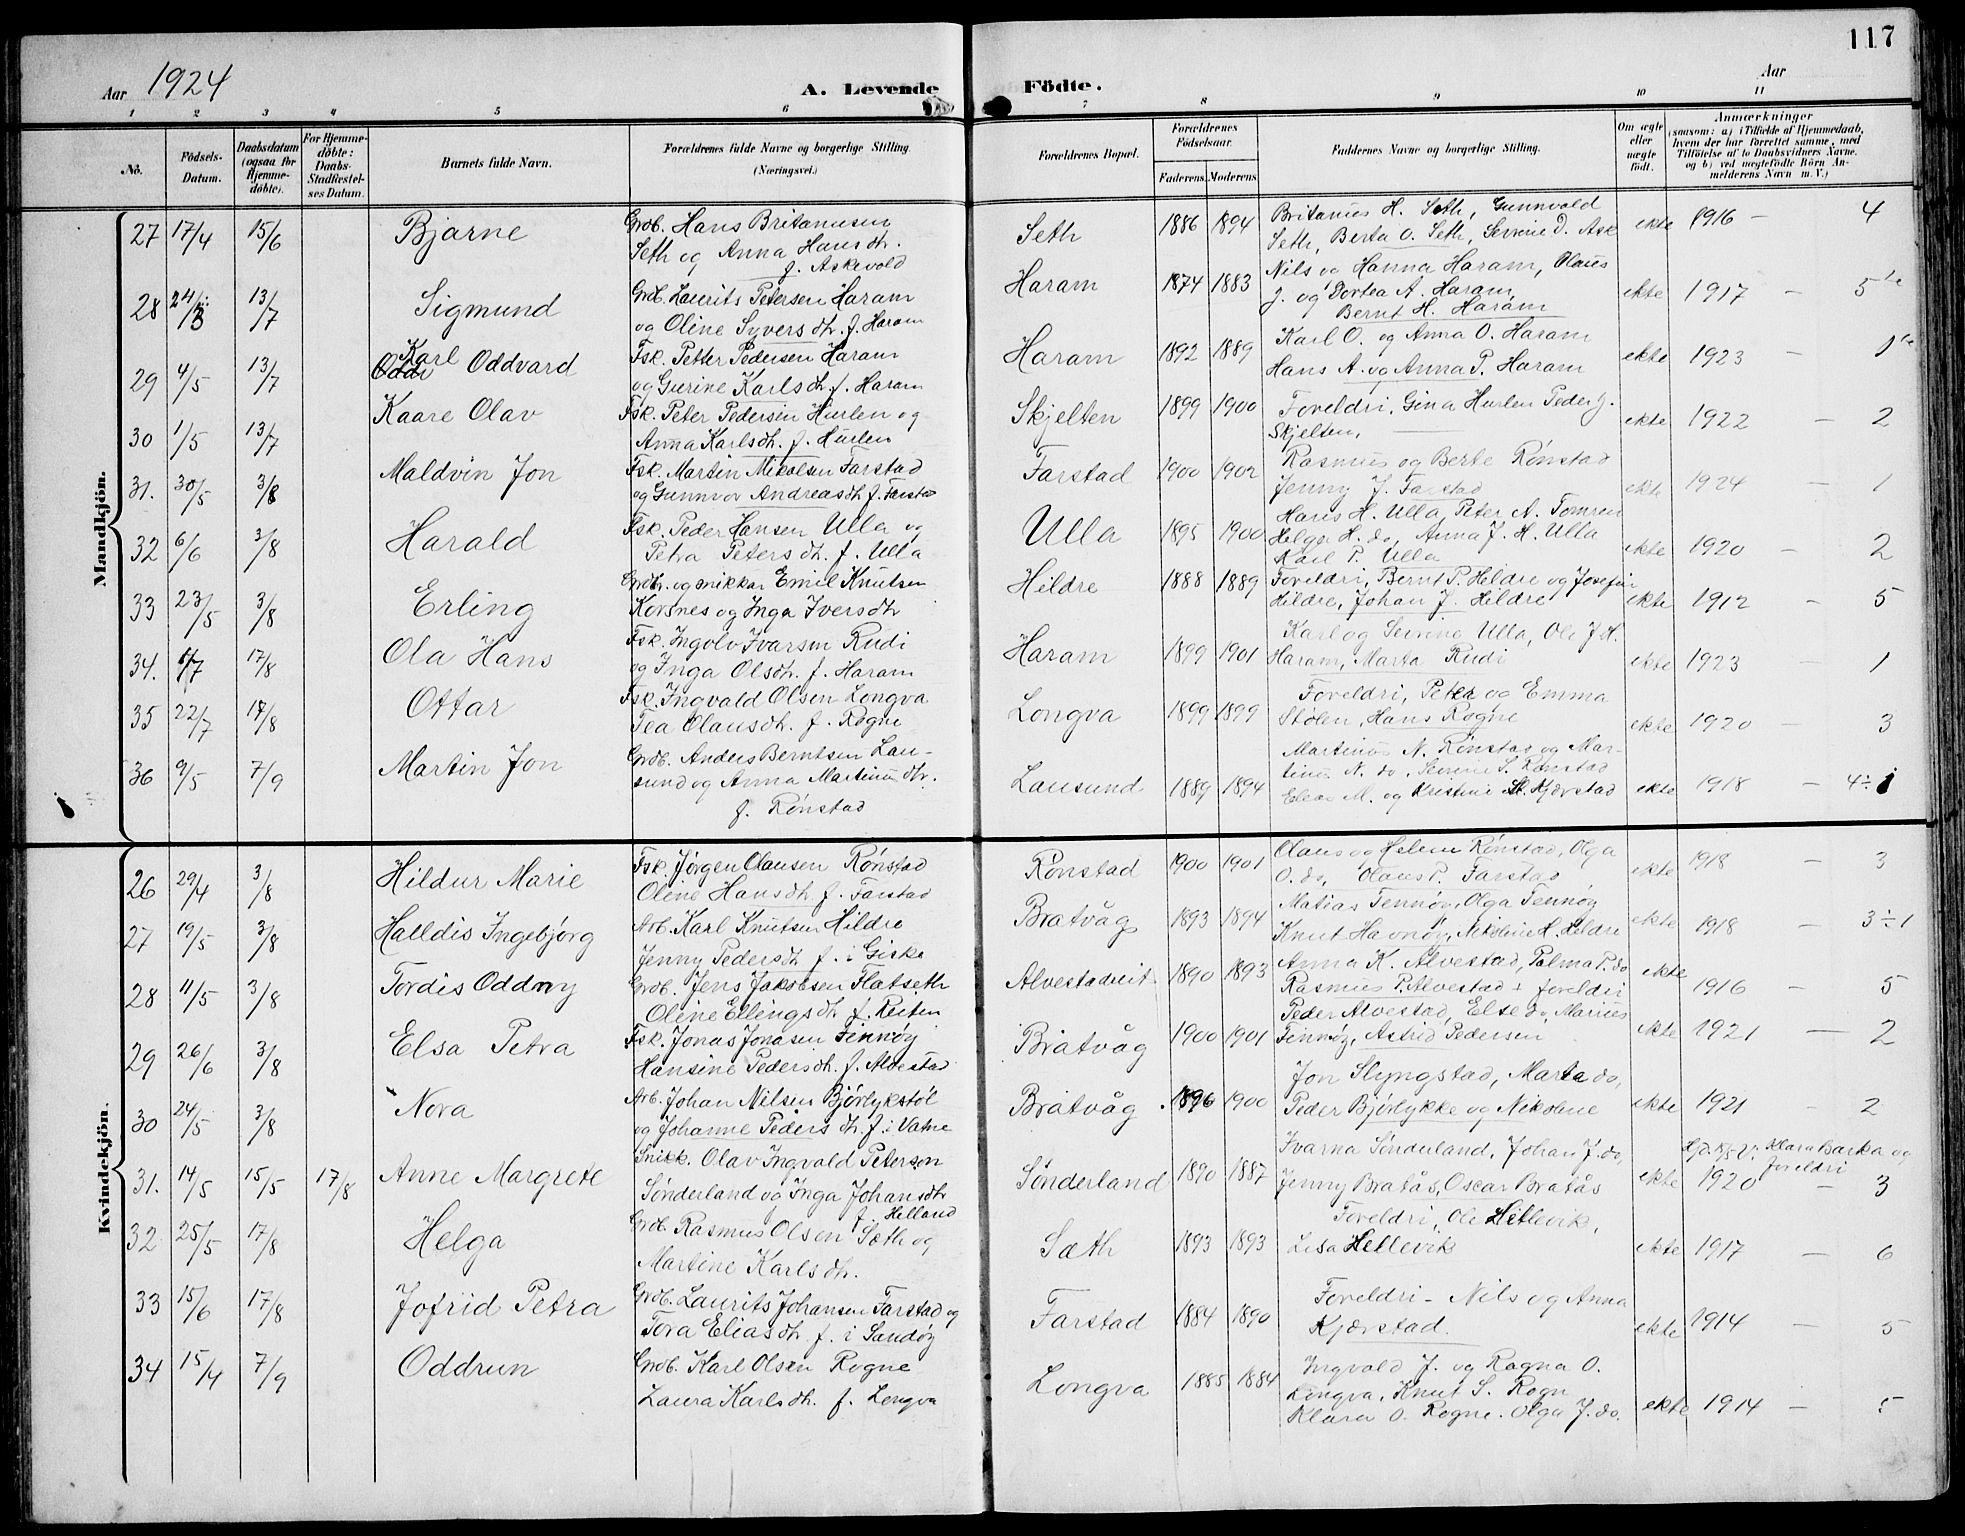 117
Aar 1924
A. Levende Födte.
Aar
1 2 3 4 5 6 7 8 9 10 11
No.
Födsels-Datum.
Daabsdatum (ogsaa for Hjemme-döbte).
For Hjemme-döbte: Daabs-Stadfestel-ses Datum.
Barnets fulde Navn.
Forældrenes fulde Navne og borgerlige Stilling. (Næringsvei.)
Forældrenes Bopæl.
Forældrenes Födselsaar.
Faderens. Moderens
Faddernes Navne og borgerlige Stilling.
Om ægte eller uægte födt.
Anmærkninger
(saasom: a) i Tilfælde af Hjemmedaab, hvem der har forrettet samme, med Tilföielse af to Daabsvidners Navne. og b) ved uægtefödte Börn An-melderens Navn m. V.)
Mandkjön.
27 17/4 15/6 Bjarne Grdb. Hans Britanusen Seth 1886 1894 Britanus H. Seth, Gunnvald ekte 1916 – 4
Seth og Anna Hansdtr. Seth, Berta O. Seth, Serine D. Ask
f. Askevold
28 24/3 13/7 Sigmund Grdb. Laurits Petersen Haram Haram 1874 1883 Nils og Hanna Haram, Olaus ekte 1917 – 5
og Oline Syversdtr. f. Haram J. og Dortea A. Haram
Bernt H. Haram
29 4/5 13/7 Karl Oddvard Fsk. Petter Pedersen Haram Haram 1892 1889 Karl O. og Anna O. Haram ekte 1923 – 1
og Gurine Karlsdtr. f. Haram Hans A. og Anna P. Haram
30 1/5 13/7 Kaare Olav Fsk. Peter Pedersen Hurlen og Skjelten 1899 1900 Foreldri, Gina Hurlen Peder J. ekte 1922 – 2
Anna Karlsdtr. f. Hurlen Skjelten,
31. 30/5 3/8 Maldvin Jon Fsk. Martin Mikalsen Farstad Farstad 1900 1902 Rasmus og Berte Rønstad ekte 1924 – 1
og Gunnvor Andreasdtr. f. Farstad Jenny J. Farstad
32 6/6 3/8 Harald Fsk. Peder Hansen Ulla og Ulla 1895 1900 Hans H. Ulla, Peter A. Tomren ekte 1920 – 2
Petra Petersdtr. f. Ulla Helga H. do, Anna J. H. Ulla
Karl P. Ulla
33 23/5 3/8 Erling Grdbr. og snikkar Emil Knutsen Hildre 1888 1889 Foreldri, Bernt P. Hildre og Josefin ekte 1912 – 5
Korsnes og Inga Iversdtr Hildre, Johan J. Hildre
34. 1/7 17/8 Ola Hans Fsk. Ingolv Ivarsen Rudi Haram 1899 1901 Karl og Serine Ulla, Ole J. H. ekte 1923 – 1
og Inga Olsdtr. f. Haram Haram, Marta Rudi
35 22/7 17/8 Ottar Fsk. Ingvald Olsen Longva Longva 1899 1899 Foreldri, Peter og Emma ekte 1920 – 3
Tea Olausdtr. f. Rogne Stølen, Hans Rogne
36 9/5 7/9 Martin Jon Grdb. Anders Berntsen Lau- Lausund 1889 1894 Martinus N. Rønstad og Mar- ekte 1918 – 4÷1
sund og Anna Martinusdtr. tinus N. do, Serine S. Rønstad
f. Rønstad Elias M. og Kristine Kjærstad
Kvindekjön.
26 29/4 3/8 Hildur Marie Fsk. Jørgen Olausen Rønstad Rønstad 1900 1901 Olaus og Helene Rønstad, Olga ekte 1918 – 3
Oline Hansdtr f. Farstad O. do, Olaus P. Farstad
27 19/5 3/8 Halldis Ingebjørg Arb. Karl Knutsen Hildre Bratvåg 1893 1894 Matias Tennøy, Olga Tennøy ekte 1918 – 3÷1
Jenny Pedersdtr f. i Giske Knut Havnøy, Nikoline H. Hildre
28 11/5 3/8 Tordis Oddny Grdb. Jens Jakobsen Flatseth Alvestadreit 1890 1893 Anna K. Alvestad, Palma P. do ekte 1916 – 5
Oline Ellingsdtr f. Reiten Rasmus P. Alvestad + foreldri
29 26/6 3/8 Elsa Petra Fsk. Jonas Jonasen Finnøy Bratvåg 1900 1901 Peder Alvestad, Else do, Marius ekte 1921 – 2
Hansine Pedersdtr. f. Alvestad Finnøy, Astrid Pedersen
30 24/5 3/8 Nora Arb. Johan Nilsen Bjørlykstøl Bratvåg 1896 1900 Jon Slyngstad, Marta do, ekte 1921 – 2
og Johanne Pedersdtr. f. i Vatne Peder Bjørlykke og Nikoline
31. 14/5 15/5 17/8 Anne Margrete Snikk. Olav Ingvald Peterson Sønderland 1890 1887 Ivarna Sønderland, Johan J. do, ekte 1920 – 3
Sønderland og Inga Johansdtr Jenny Bratås, Oscar Bratås Klara Barka og foreldri
f. Helland
32 25/5 17/8 Helga Grdb. Rasmus Olsen Sæth og Sæth 1893 1893 Foreldri, Ole Hellevik, ekte 1917 – 6
Martine Karlsdtr. Lisa Hellevik
33 15/6 17/8 Jofrid Petra Grdb. Laurits Johansen Farstad og Farstad 1884 1890 Foreldri – Nils og Anna ekte 1914 – 5
Tora Eliasdtr f. i Sandøy Kjærstad.
34 15/4 7/9 Oddrun Grdb. Karl Olsen Rogne Longva 1885 1884 Ingvald J. og Ragna O. ekte 1914 – 5
Laura Karlsdtr. f. Longva Longva, Knut S. Rogn
Klara O. Rogne. Olga J. do.